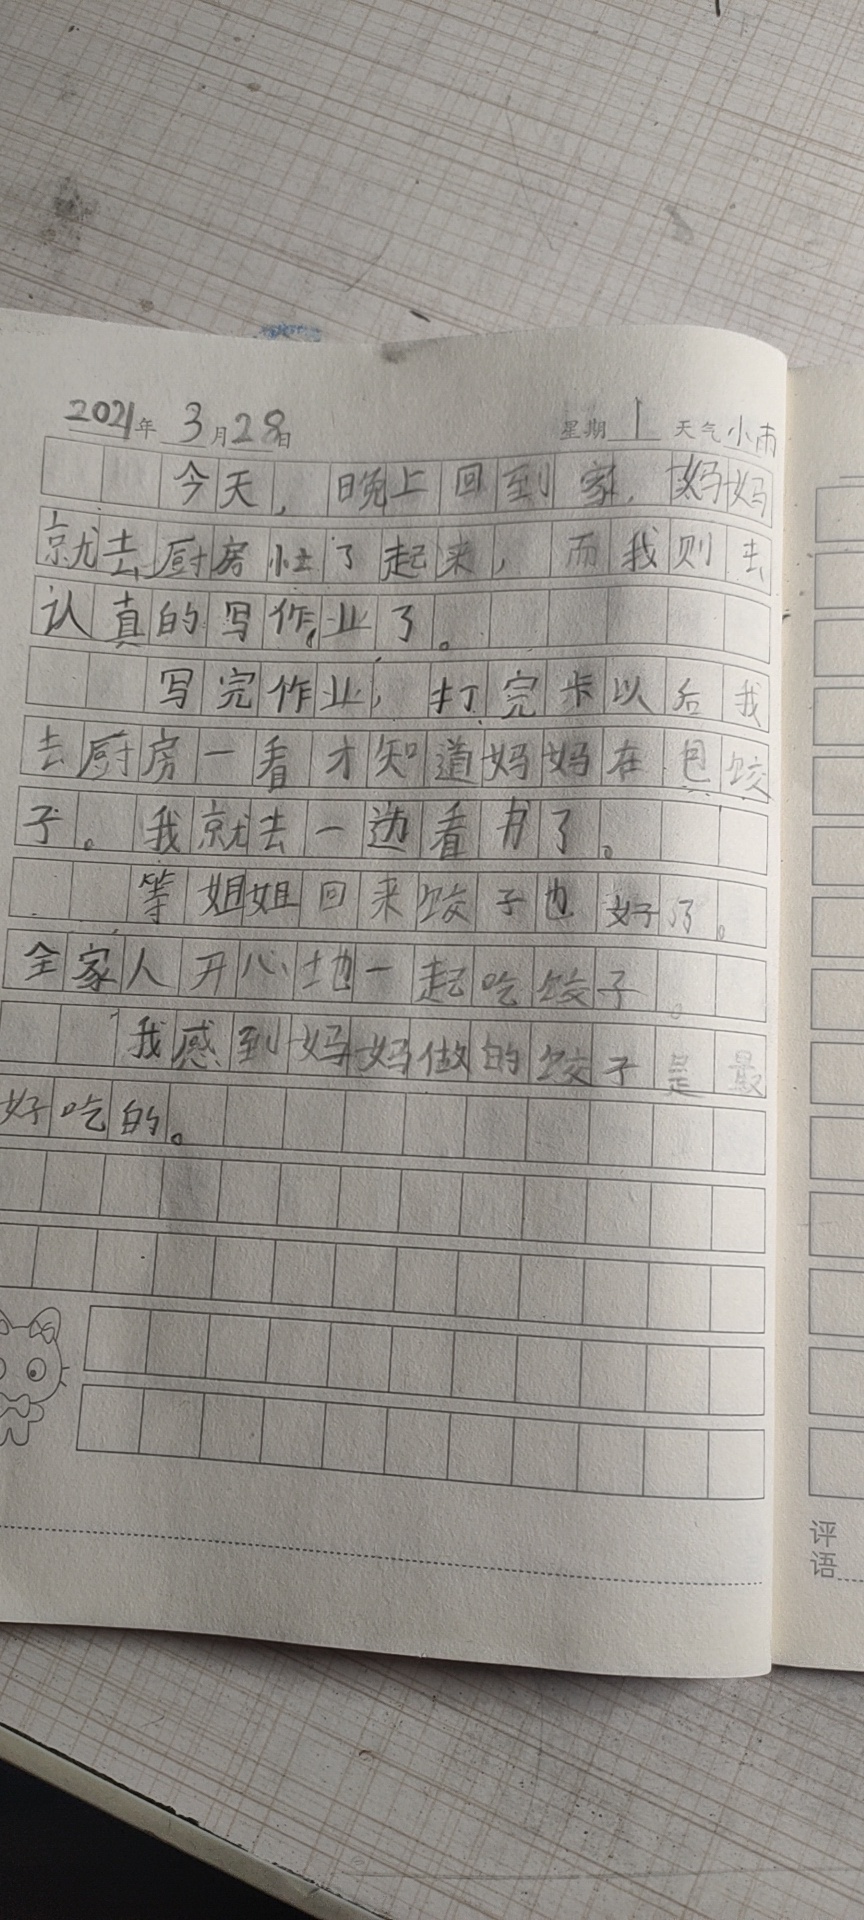 2021年 3月28日 星期1 天气小雨
今天，晚上回到家，妈妈
就去厨房忙了起来，而我则去
认真的写作业了。
写完作业，打完卡以后我
去厨房一看才知道妈妈在包饺
子。我就去一边看书了。
等姐姐回来饺子也好了。
全家人开心地一起吃饺子。
我感到妈妈做的饺子是最
好吃的。
评
语